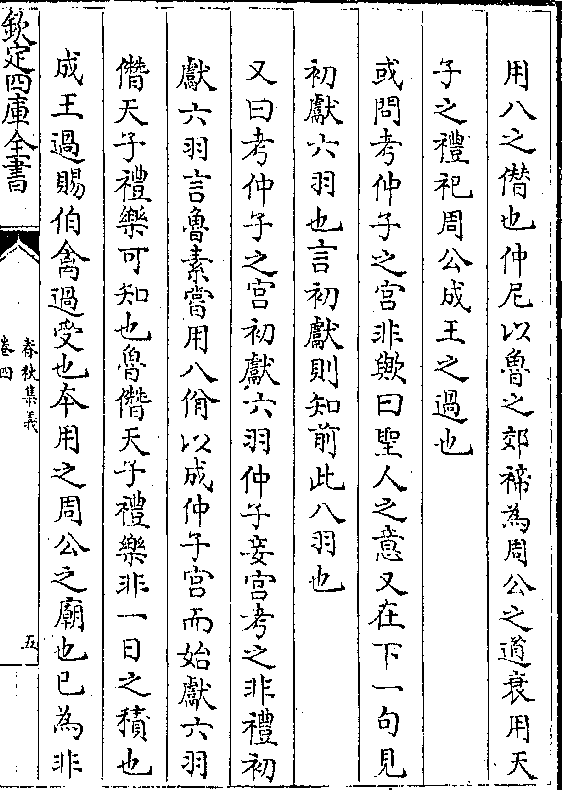 用八之僣也仲尼以魯之郊禘為周公之道衰用天
子之禮祀周公成王之過也
或問考仲子之宫非歟曰聖人之意又在下一句見
初獻六羽也言初獻則知前此八羽也
又曰考仲子之宫初獻六羽仲子妾宫考之非禮初
獻六羽言魯素嘗用八佾以成仲子宫而始獻六羽
僣天子禮樂可知也魯僣天子禮樂非一日之積也
成王過賜伯禽過受也本用之周公之廟也已為非
欽定四庫全書
春秋集義
卷四
五